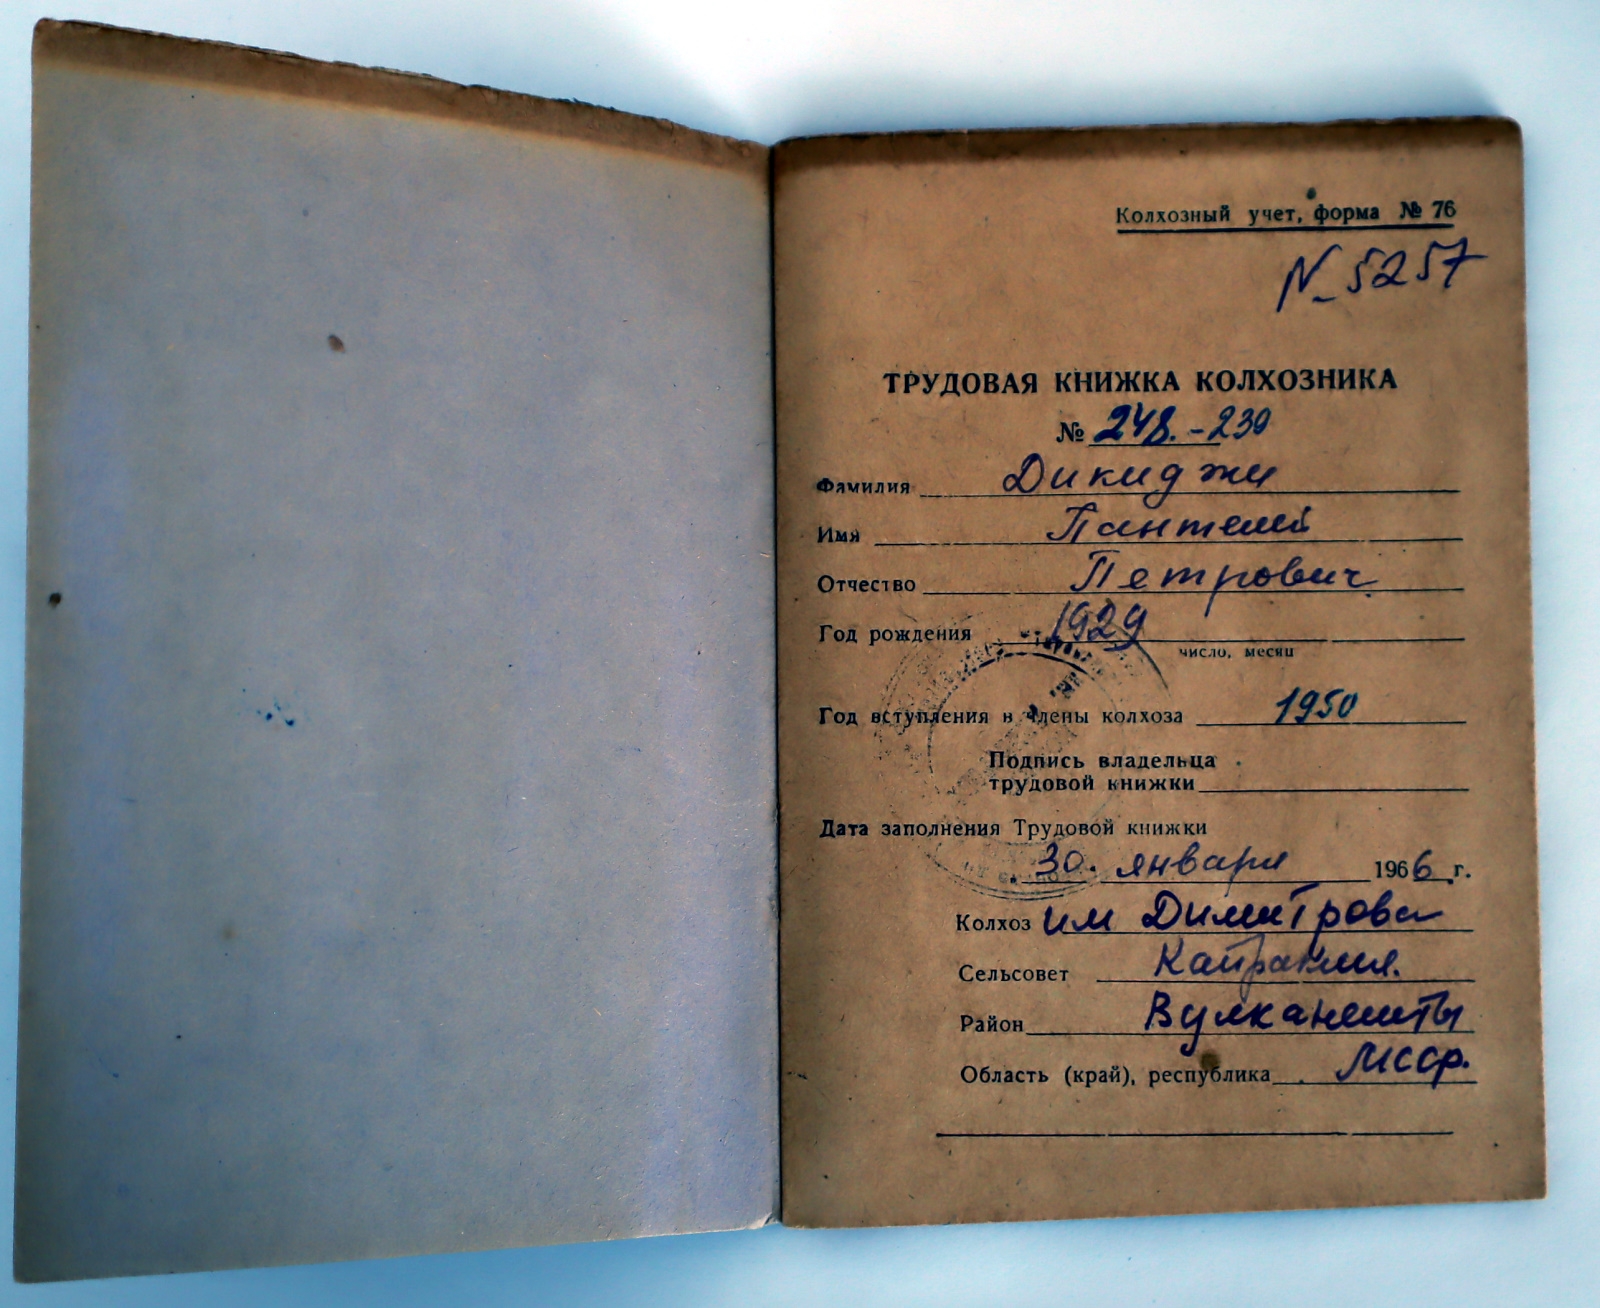 Колхозный учет, форма № 76
N 5257
ТРУДОВАЯ КНИЖКА КОЛХОЗНИКА
№ 248.-239
Фамилия Дикиджи
Имя Пантелей
Отчество Петрович
Год рождения 1929
число, месяц
Год вступления в члены колхоза 1950
Подпись владельца
трудовой книжки
Дата заполнения Трудовой книжки
30. января 1966 г.
Колхоз им Димитрова
Сельсовет Кайраклия.
Район Вулканешты
Область (край), республика МССР.